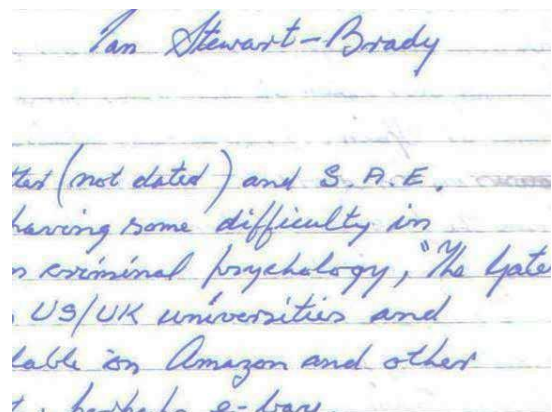 Ian Stewart-Brady
tter (not dated) and S.A.E.
having some difficulty in
n criminal psychology, "The Gate
US/UK universities and
lable on Amazon and other
t, perhaps e-bay.